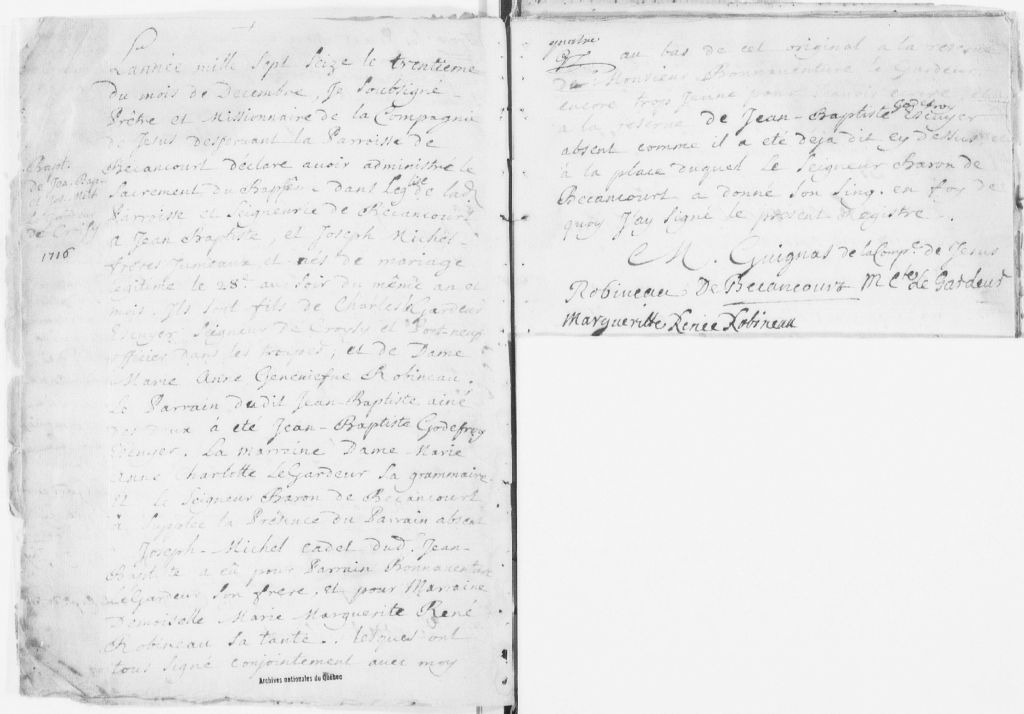 Bapt.
de Jean Bap.
et Jos. Mich.
le Gardeur
de Croisy
1716
Lannée mille sept seize le trentieme
du mois de Decembre, Je Soubsigné
Prêtre et Missionnaire de la Compagnie
de Jesus desservant la Parroisse de
Becancourt déclare avoir administré le
Sacrement du Bapte dans Leglise de lad.
Parroisse et Seigneurie de Becancourt
a Jean Baptiste, et Joseph Michel
freres Jumeaux et nés de mariage
legitime le 28e au Soir du même an et
mois. Ils sont fils de Charles LeGardeur
Escuyer Seigneur de Croysy et
officier dans les troupes, et de Dame
Marie Anne Geneviefve Robineau.
Le Parrain dudit Jean-Baptiste ainé
des deux à eté Jean-Baptiste Godefroy
Escuyer. La marraine Dame Marie
Anne Charlotte LeGardeur sa grammaire
et le Seigneur Baron de Becancourt
à Supplée la Présence du Parrain absent
Joseph-Michel cadet dud. Jean-
Baptiste a eû pour Parrain Bonnaventure
LeGardeur son frere, et pour Marraine
Demoiselle Marie Marguerite René
Robineau sa tante. lesques ont
tous signé conjointement avec moy
Archives nationales du Québec
quatre
au bas de cet original a la reserve
de Monsieur Bonnaventure le Gardeur
encore trop Jeune pour
a la reserve de Jean-Baptiste Godefroy Escuyer
absent comme il a eté déja dit cy dessus
à la place duquel Le Seigneur Baron de
Becancourt a donné son sing. en foy de
quoy J'ay Signé le present Registre.
M. Guignas de la Comp. de Jesus
Robineau De Becancourt M C le Gardeur
Margueritte Renée Robineau